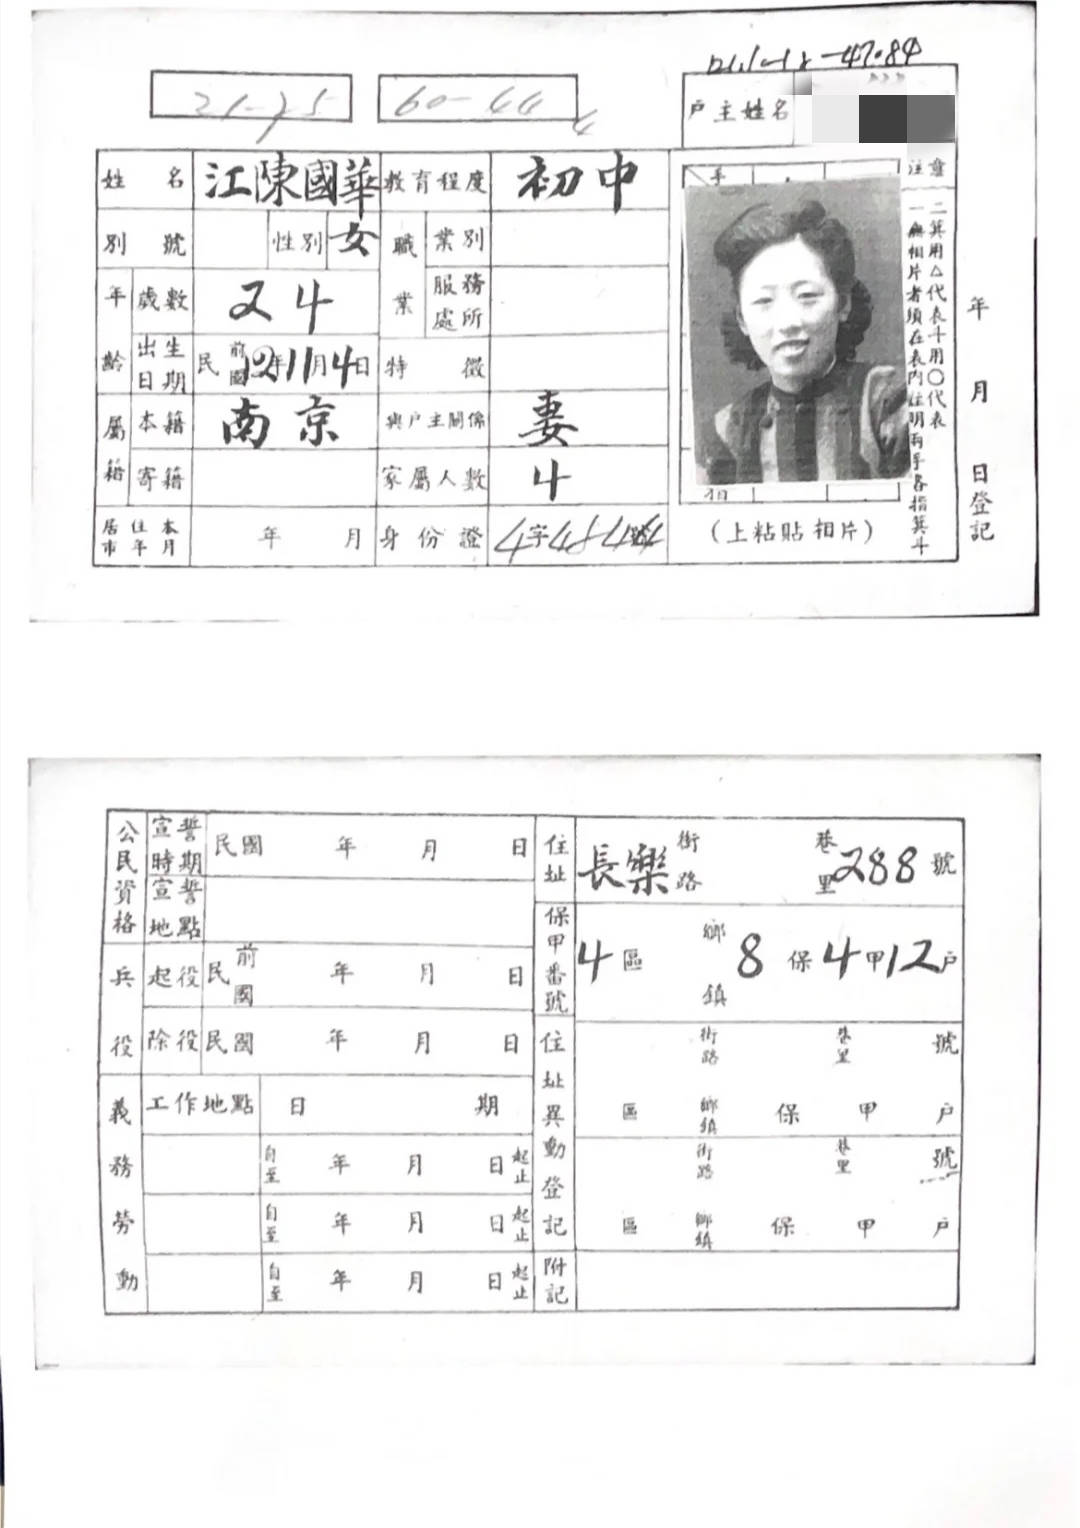 21-75
60-44
4
戶主姓名
姓名 江陳國華 教育程度 初中
別號 性別 女 職業 業別
年齡 歲數 24 服務處所
出生日期 民前國12年11月4日 特徵
屬籍 本籍 南京 與戶主關係 妻
寄籍 家屬人數 4
居住本市年月 年 月 身份證 字 號
手
指
(上粘貼相片)
注意
一無相片者須在表內註明兩手各指箕斗
二箕用△代表斗用〇代表
年 月 日登記
公民資格 宣誓時期 民國 年 月 日
宣誓地點
兵役 起役 民前國 年 月 日
除役 民國 年 月 日
義務勞動 工作地點 日 期
自至 年 月 日起止
自至 年 月 日起止
自至 年 月 日起止
住址 長樂 街路 巷里 288 號
保甲番號 4區 鄉鎮 8保4甲12戶
住址異動登記 街路 巷里 號
區 鄉鎮 保 甲 戶
街路 巷里 號
區 鄉鎮 保 甲 戶
附記